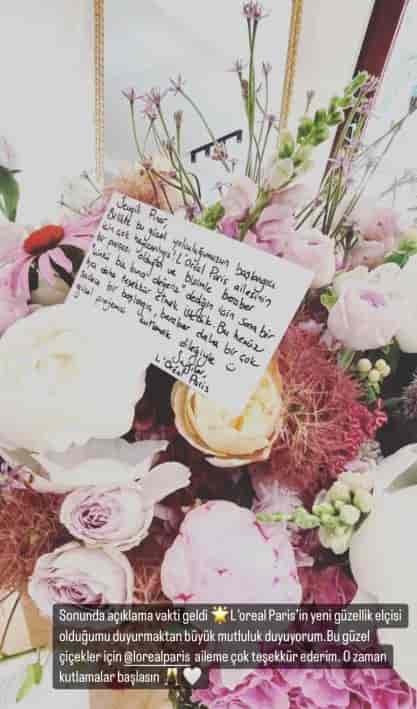 Sevgili Pınar,
Birlikte bu güzel yolculuğumuzun başlangıcı
için çok heyecanlıyız! L'oréal Paris ailesinin
bir parçası olduğun ve bizimle beraber
buna değeriz dediğin için Sana bir
kez daha teşekkür etmek istedik. Bu henüz
sadece bir başlangıç, beraber daha bir çok
güzel projemizi kutlamak
dileğiyle ☺
Sevgiler,
L'Oréal Paris
Sonunda açıklama vakti geldi 🌟L'oreal Paris'in yeni güzellik elçisi
olduğumu duyurmaktan büyük mutluluk duyuyorum.Bu güzel
çiçekler için @lorealparis aileme çok teşekkür ederim. O zaman
kutlamalar başlasın 🥂🤍